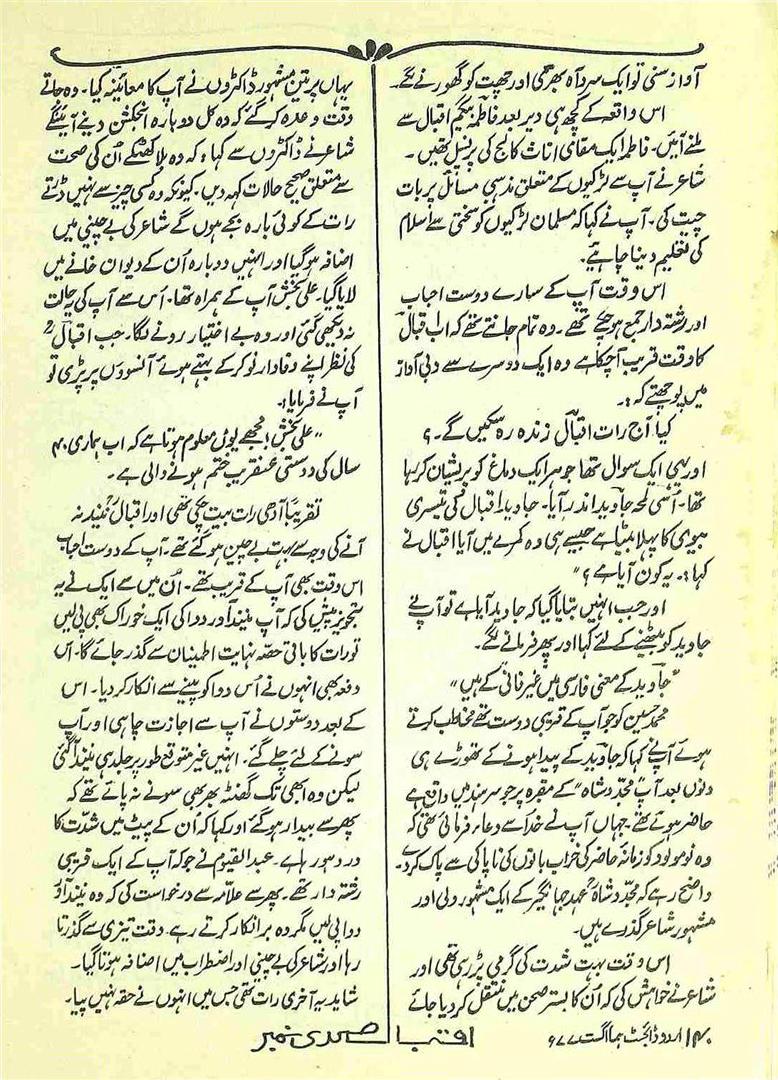 آواز سنی تو ایک سرد آہ بھری اور چھت کو گھورنے لگے۔
اس واقعہ کے کچھ ہی دیر بعد فاطمہ بیگم اقبال سے
ملنے آئیں۔ فاطمہ ایک مقامی اناث کالج کی پرنسپل تھیں۔
شاعر نے آپ سے لڑکیوں کے متعلق مذہبی مسائل پر بات
چیت کی۔ آپ نے کہا کہ مسلمان لڑکیوں کو سختی سے اسلام
کی تعلیم دینا چاہیے۔
اس وقت آپ کے سارے دوست احباب
اور رشتہ دار جمع ہو چکے تھے۔ وہ تمام جانتے تھے کہ اب اقبالؔ
کا وقت قریب آ چکا ہے وہ ایک دوسرے سے دبی آواز
میں پوچھتے کہ:۔
کیا آج رات اقبالؔ زندہ رہ سکیں گے۔؟
اور یہی ایک سوال تھا جو ہر ایک دماغ کو پریشان کر رہا
تھا۔ اُسی لمحہ جاوید اندر آیا۔ جاوید اقبال کی تیسری
بیوی کا پہلا بیٹا ہے جیسے ہی وہ کمرے میں آیا اقبال نے
کہا:۔ یہ کون آیا ہے؟"
اور جب انہیں بتایا گیا کہ جاوید آیا ہے تو آپ نے
جاوید کو بیٹھنے کے لئے کہا اور پھر فرمانے لگے۔
"جاوید کے معنی فارسی میں غیر فانی کے ہیں"
محمد حسین کو جو آپ کے قریبی دوست تھے مخاطب کرتے
ہوئے آپ نے کہا کہ جاوید کے پیدا ہونے کے تھوڑے ہی
دنوں بعد آپ "مجدد شاہ" کے مقبرہ پر جو سرہند میں واقع ہے
حاضر ہوئے تھے۔ جہاں آپ نے خدا سے دعاء فرمائی تھی کہ
وہ نومولود کو زمانہ حاضر کی خراب باتوں کی ناپاکی سے پاک کر دے۔
واضح رہے کہ مجدد شاہ عہد جہانگیر کے ایک مشہور ولی اور
مشہور شاعر گذرے ہیں۔
اس وقت بہت شدت کی گرمی پڑ رہی تھی اور
شاعر نے خواہش کی کہ اُن کا بستر صحن میں منتقل کر دیا جائے
یہاں پر تین مشہور ڈاکٹروں نے آپ کا معائینہ کیا۔ وہ جاتے
وقت وعدہ کر گئے کہ وہ کل دوبارہ انجکشن دینے آئینگے
شاعر نے ڈاکٹروں سے کہا: کہ وہ بلا کھٹکے اُن کی صحت
سے متعلق صحیح حالات کہہ دیں۔ کیونکہ وہ کسی چیز سے نہیں ڈرتے
رات کے کوئی بارہ بجے ہوں گے شاعر کی بے چینی میں
اضافہ ہو گیا اور انہیں دوبارہ اُن کے دیوان خانے میں
لایا گیا۔ علی بخش آپ کے ہمراہ تھا۔ اُس سے آپ کی یہ حالت
نہ دیکھی گئی اور وہ بے اختیار رونے لگا۔ جب اقبالؔ
کی نظر اپنے وفادار نوکر کے بہتے ہوئے آنسوؤں پر پڑی تو
آپ نے فرمایا:۔
"علی بخش! مجھے یوں معلوم ہوتا ہے کہ اب ہماری ۴۰
سال کی دوستی عنقریب ختم ہونے والی ہے۔
تقریباً آدھی رات بیت چکی تھی اور اقبالؔ نیند نہ
آنے کی وجہ سے بہت بے چین ہو گئے تھے۔ آپ کے دوست احباب
اس وقت بھی آپ کے قریب تھے۔ اُن میں سے ایک نے یہ
تجویز پیش کی کہ آپ نیند آور دوا کی ایک خوراک بھی پی لیں
تو رات کا باقی حصہ نہایت اطمینان سے گذر جائے گا۔ اس
دفعہ بھی انہوں نے اُس دوا کو پینے سے انکار کر دیا۔ اس
کے بعد دوستوں نے آپ سے اجازت چاہی اور آپ
سونے کے لئے چلے گئے۔ انہیں غیر متوقع طور پر جلد ہی نیند آ گئی
لیکن وہ ابھی تک گھنٹہ بھر بھی سونے نہ پائے تھے کہ
پھر سے بیدار ہو گئے اور کہا کہ اُن کے پیٹ میں شدت کا
درد ہو رہا ہے۔ عبدالقیوم نے جو کہ آپ کے ایک قریبی
رشتہ دار تھے۔ پھر سے علامہ سے درخواست کی کہ وہ نیند آور
دوا پی لیں مگر وہ برابر انکار کرتے رہے۔ وقت تیزی سے گذرتا
رہا اور شاعر کی بے چینی اور اضطراب میں اضافہ ہوتا گیا۔
شاید یہ آخری رات تھی جس میں انہوں نے حقہ نہیں پیا۔
۴۰ اردو ڈائجسٹ ہما اگست ۷۷ء اقبال صدی نمبر